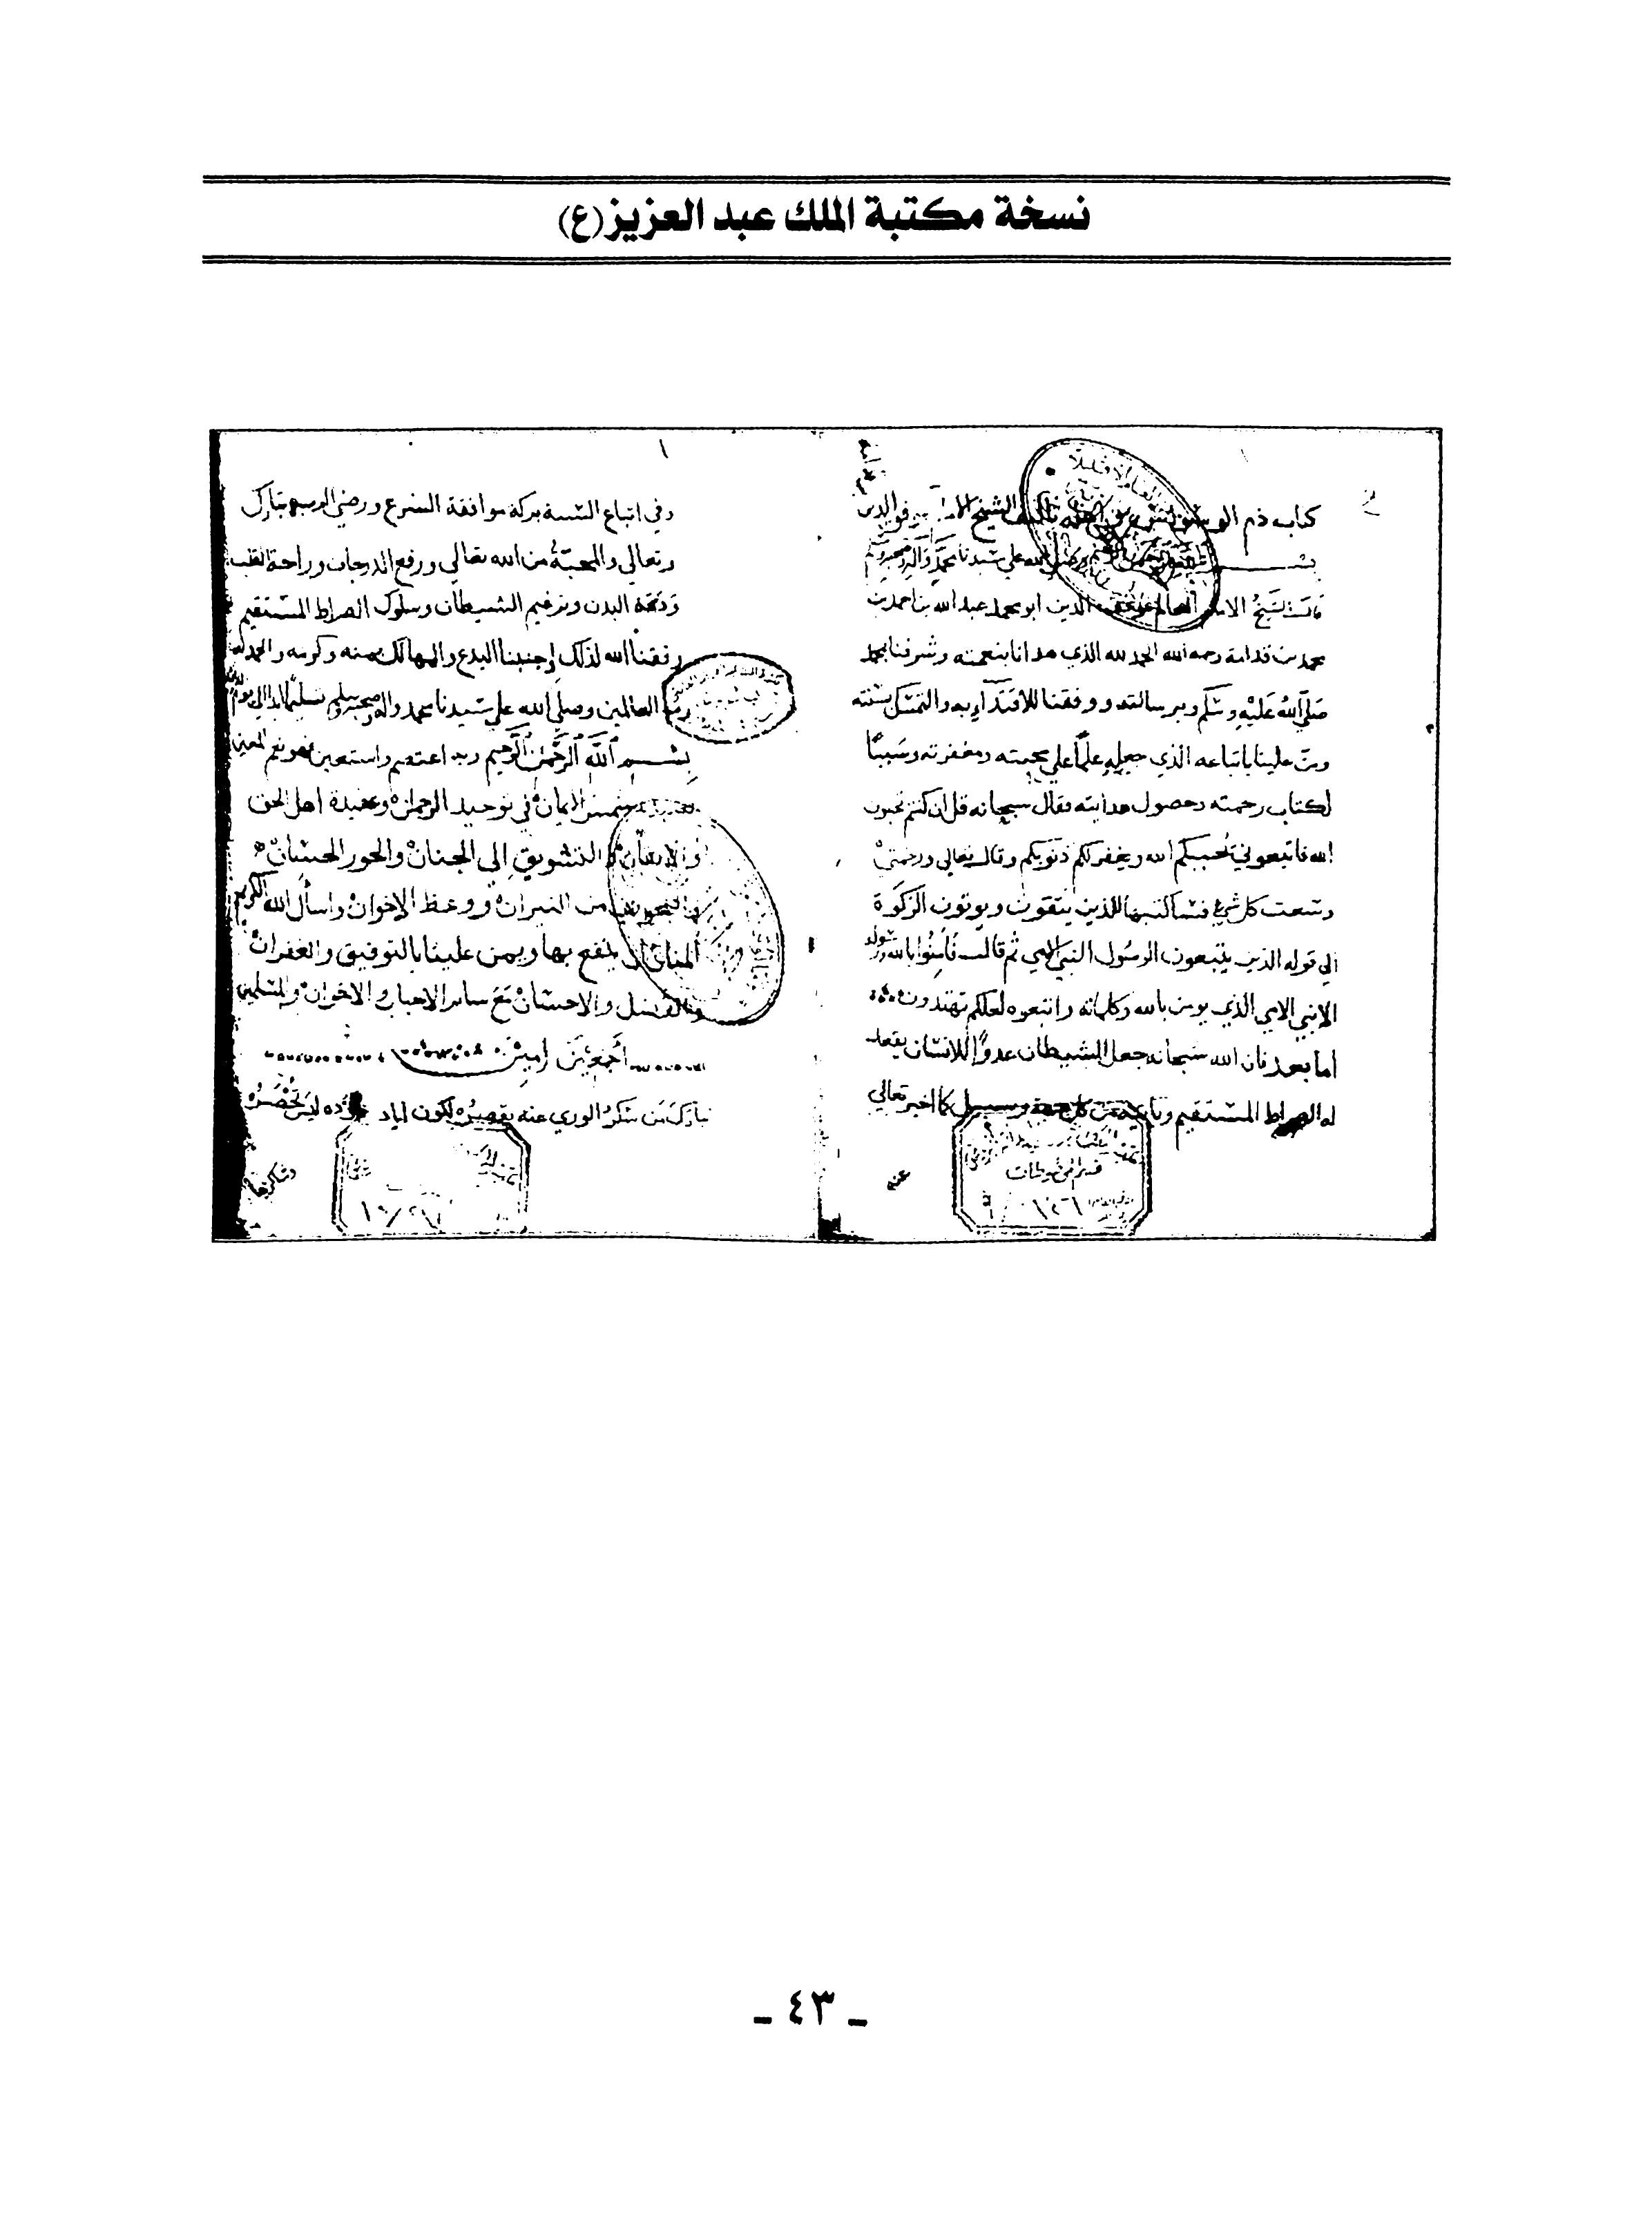 نسخة مكتبة الملك عبد العزيز (ع)
كتاب ذم تاليف الشيخ الدين
صلى الله على سيدنا محمد واله وصحبه وسلم
الشيخ الامام العالم الدين ابو محمد عبد الله بن احمد بن
محمد بن قدامة رحمه الله الحمد لله الذي هدانا بنعمته وشرفنا بمحمد
صلى الله عليه وسلم وبرسالته ووفقنا للاقتداء به والتمسك بسنته
ومن علينا باتباعه الذي جعله علما على محبته ومغفرته وسببا
لكتاب رحمته وحصول هدايته فقال سبحانه قل ان كنتم تحبون
الله فاتبعوني يحببكم الله ويغفر لكم ذنوبكم وقال تعالى ورحمتي
وسعت كل شيء فسأكتبها للذين يتقون ويوتون الزكوة
الى قوله الذين يتبعون الرسول النبي الامي ثم قال فآمنوا بالله ورسوله
النبي الامي الذي يومن بالله وكلماته واتبعوه لعلكم تهتدون
اما بعد فان الله سبحانه جعل الشيطان عدوا للانسان يقعد
له الصراط المستقيم وياتيه من كل جهة وسبيل كما اخبر تعالى
وفي اتباع السنة بركة موافقة الشرع ورضي الرب تبارك
وتعالى والمحبة من الله تعالى ورفع الدرجات وراحة القلب
ودعة البدن وترغيم الشيطان وسلوك الصراط المستقيم
وفقنا الله لذلك وجنبنا البدع والمهالك بمنه وكرمه والحمد لله
رب العالمين وصلى الله على سيدنا محمد واله وصحبه وسلم تسليما ابدا الى يوم
بسم الله الرحمن الرحيم وبه اعتصم واستعين فهو نعم المعين
الايمان في توحيد الرحمن وعقيدة اهل الحق
والتشويق الى الجنان والحور الحسان
من النيران ووعظ الاخوان واسأل الله الكريم
المنان ان ينفع بها ويمن علينا بالتوفيق والغفران
والفضل والاحسان مع ساير الاحباب والاخوان والمسلمين
أجمعين امين
تبارك من شكر الوري عنه يقصر لكون اياد ليس تحصر
ـ ٤٣ ـ